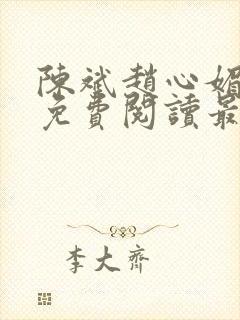 陳斌趙心媚
免費閱讀最
李大齊